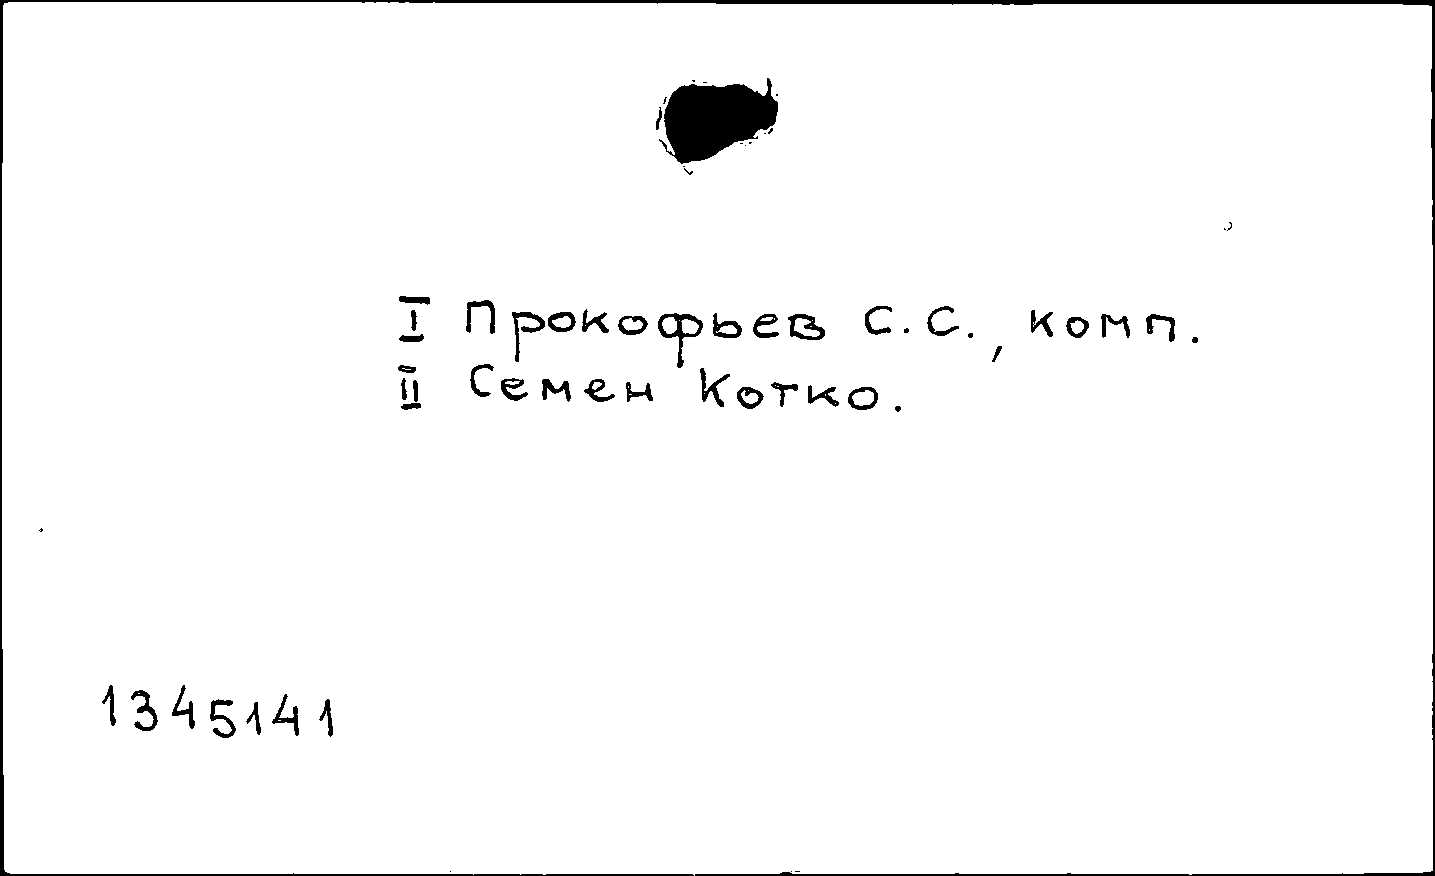 I Прокофьев С.С., комп.
II Семен Котко.
1345141